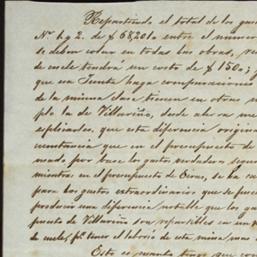 Repartiendo el total de los gas
Nº 1 y 2. de $ 68,201 entre el número
se deben colar en todas las obras,
de cuele tendrá un costo de $ 150;
que un Junta haga comparaciones
de la misma clase tienen en otras
plo la de Villariño, desde ahora me
esplicarles, que esta diferencia origina
cunstancia que en el presupuesto de
mado por base los gastos verdaderos
mientras en el presupuesto de Oiros, se ha
para los gastos extraordinarios que se pue
producir una diferencia notable que los ga
puesto de Villariño son repartibles en un
de cuele, pr. tener el laborío de esta mina mas
Esto es cuanto tengo que